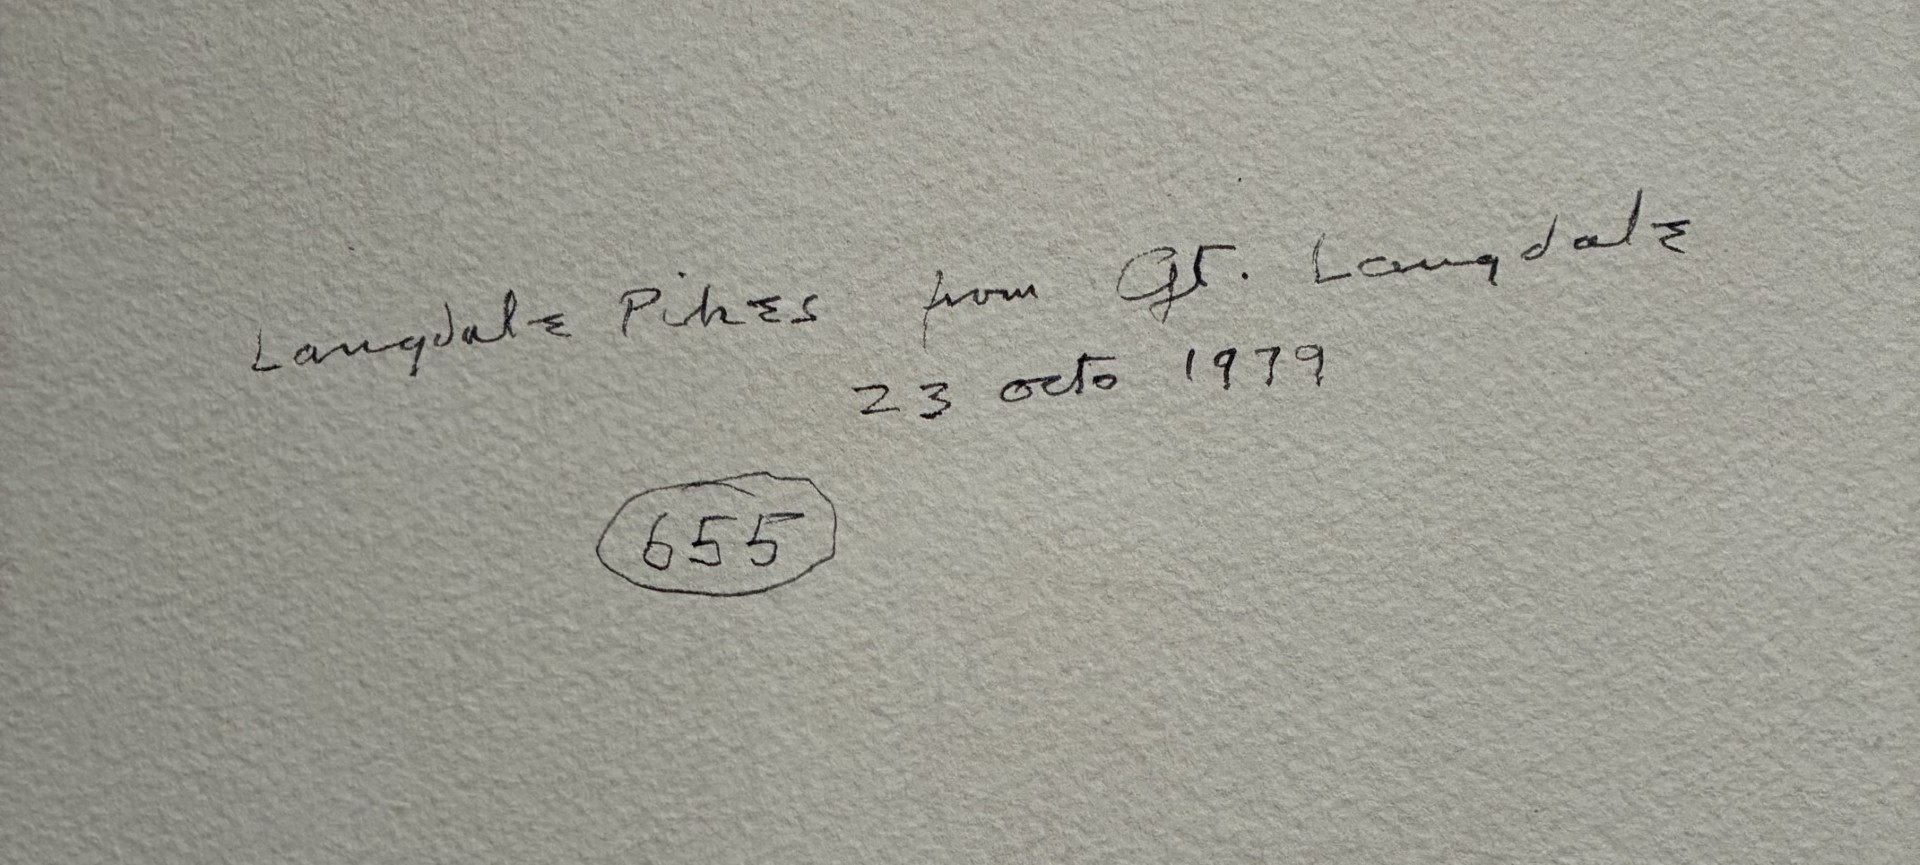 Langdale Pikes from Gt. Langdale
23 octo 1979
655